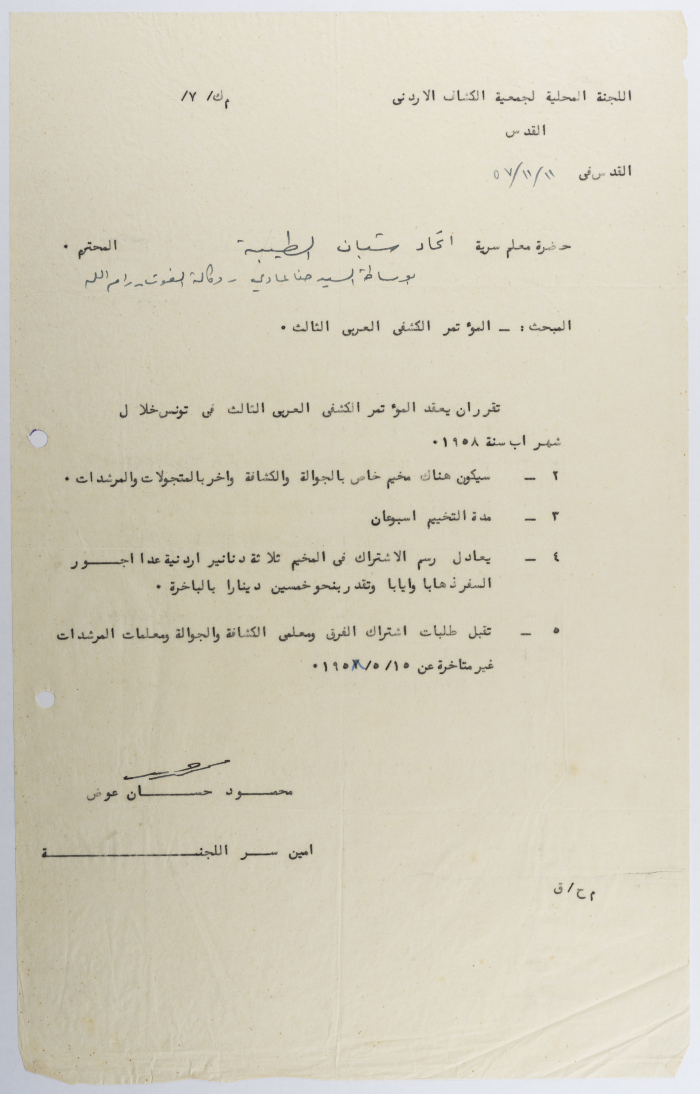 اللجنة المحلية لجمعية الكشاف الاردنى م ك/ ٧/
القدس
القدس فى ٥٧/١١/١١
حضرة معلم سرية اتحاد شبان الطيبة المحترم ٠
بوساطة السيد حنا عادي - وكالة الغوث - رام الله
المبحث : ـ المؤتمر الكشفى العربى الثالث ٠
تقرر ان يعقد المؤتمر الكشفى العربى الثالث فى تونس خلال
شهر اب سنة ١٩٥٨٠
٢ ـ سيكون هناك مخيم خاص بالجوالة والكشافة واخر بالمتجولات والمرشدات ٠
٣ ـ مدة التخييم اسبوعان
٤ ـ يعادل رسم الاشتراك فى المخيم ثلاثة دنانير اردنية عدا اجـــور
السفر ذهابا وايابا وتقدر بنحو خمسين دينارا بالباخرة ٠
٥ ـ تقبل طلبات اشتراك الفرق ومعلمى الكشافة والجوالة ومعلمات المرشدات
غير متاخرة عن ١٥/٥/١٩٥٨٠
محمـــود حســـان عوض
امين ســـر اللجنـــــــة
م ح/ق